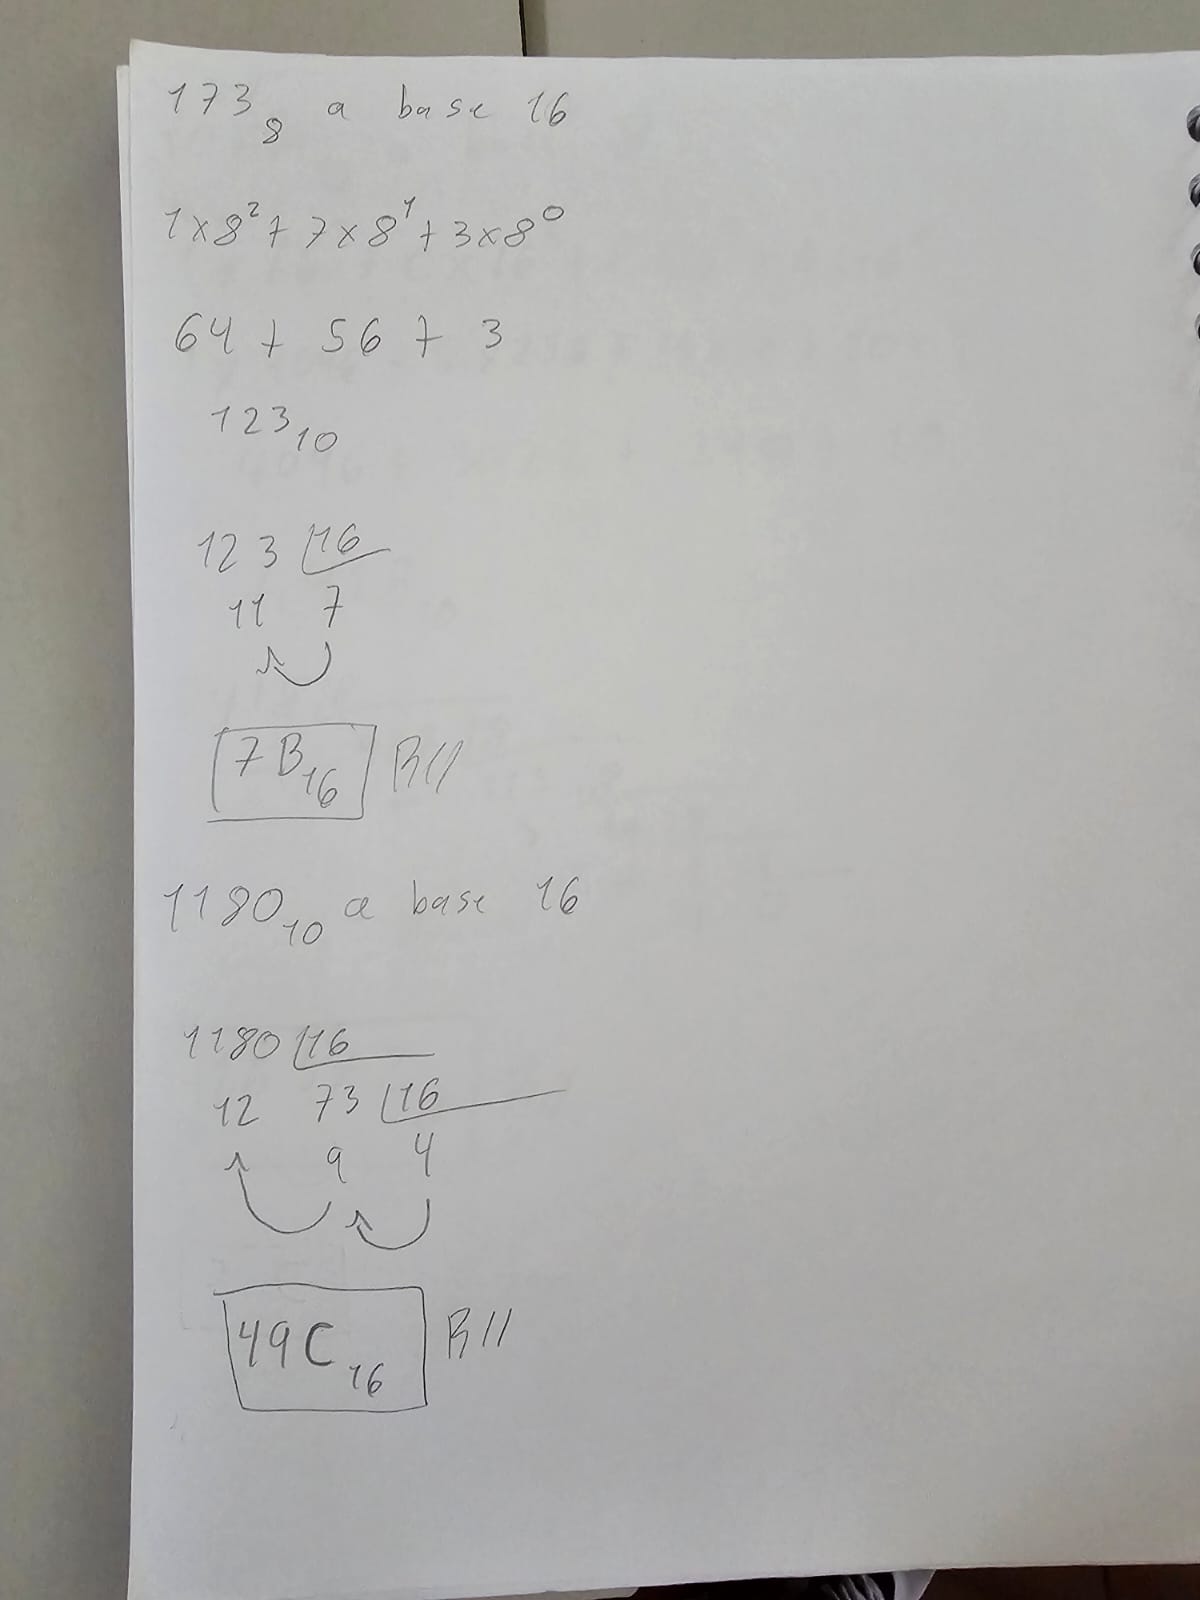 173₈ a base 16
1x8² + 7x8¹ + 3x8⁰
64 + 56 + 3
123₁₀
123 16
11 7
7B₁₆ R//
1180₁₀ a base 16
1180 16
12 73 16
9 4
49C₁₆ R//